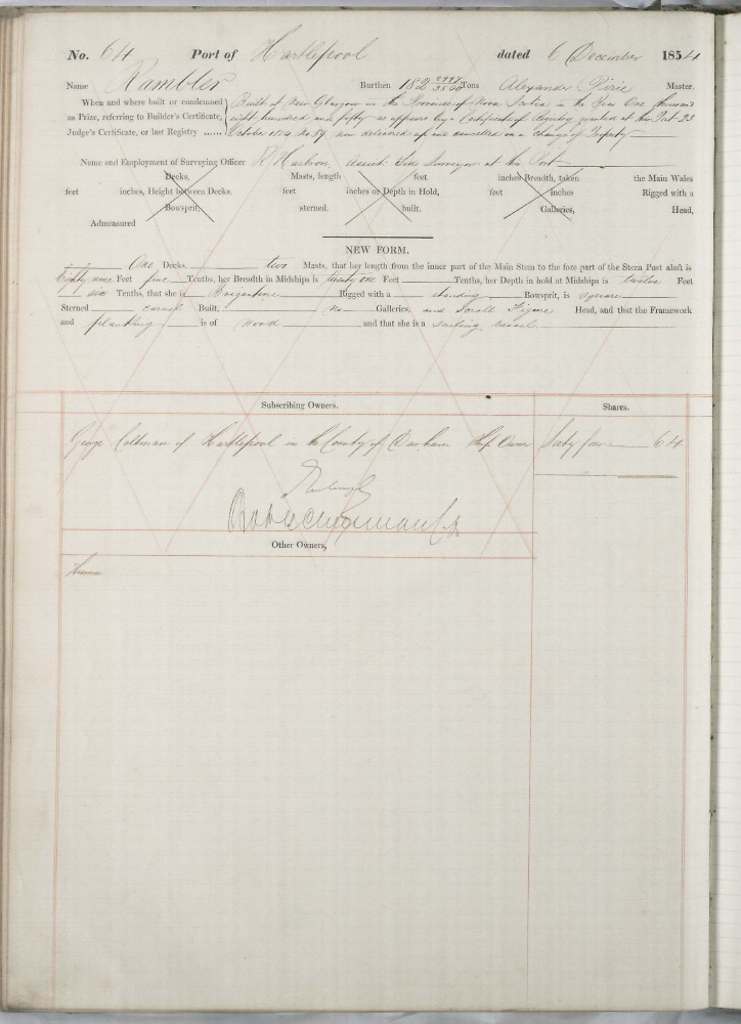 No. 64 Port of Hartlepool dated 6 December 1854
Name Rambler Burthen 182 Tons Alexander Pirie Master.
When and where built or condemned Built at New Glasgow in the Province of Nova Scotia in the Year One thousand
as Prize, referring to Builder's Certificate, eight hundred and fifty as appears by a Certificate of Registry granted at this Port 23
Judge's Certificate, or last Registry ...... October 1854 No. 57 now delivered up and cancelled on a change of Property
Name and Employment of Surveying Officer R Harbron Tide Surveyor at this Port
Decks, Masts, length feet inches Breadth, taken the Main Wales
feet inches, Height between Decks. feet inches or Depth in Hold, feet inches Rigged with a
Bowsprit, sterned. built. Galleries, Head,
Admeasured
NEW FORM.
One Decks two Masts, that her length from the inner part of the Main Stem to the fore part of the Stern Post aloft is
Eighty nine Feet five Tenths, her Breadth in Midships is twenty one Feet Tenths, her Depth in hold at Midships is twelve Feet
six Tenths, that she is Brigantine Rigged with a standing Bowsprit, is square
Sterned carvel Built, no Galleries, and Scroll Figure Head, and that the Framework
and planking is of wood and that she is a sailing vessel
Subscribing Owners. Shares.
George Coltman of Hartlepool in the County of Durham Ship Owner Sixty four 64
Other Owners,
None